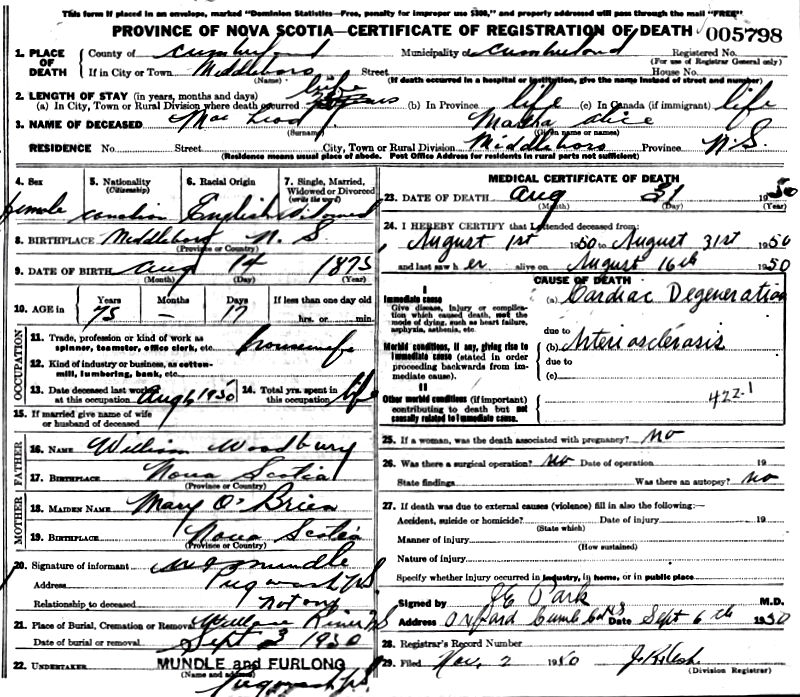 This form if placed in an envelope, marked "Dominion Statistics—Free, penalty for improper use $300," and properly addressed will pass through the mail "FREE"
PROVINCE OF NOVA SCOTIA—CERTIFICATE OF REGISTRATION OF DEATH 005798
1. PLACE OF DEATH County of Cumberland Municipality of Cumberland Registered No.
(For use of Registrar General only)
If in City or Town Middleboro Street House No.
(Name) (If death occurred in a hospital or institution, give the name instead of street and number)
2. LENGTH OF STAY (in years, months and days)
(a) In City, Town or Rural Division where death occurred life (b) In Province life (c) In Canada (if immigrant) life
3. NAME OF DECEASED Mac Leod Martha Alice
(Surname) (Given name or names)
RESIDENCE No. Street City, Town or Rural Division Middleboro Province N.S.
(Residence means usual place of abode. Post Office Address for residents in rural parts not sufficient)
4. Sex female
5. Nationality (Citizenship) Canadian
6. Racial Origin English
7. Single, Married, Widowed or Divorced (write the word) Widowed
8. BIRTHPLACE Middleboro N. S.
(Province or Country)
9. DATE OF BIRTH Aug 14 1875
(Month) (Day) (Year)
10. AGE in Years Months Days If less than one day old
75 — 17 hrs. or min.
OCCUPATION
11. Trade, profession or kind of work as spinner, teamster, office clerk, etc. housewife
12. Kind of industry or business, as cotton-mill, lumbering, bank, etc.
13. Date deceased last worked at this occupation Aug 1950 14. Total yrs. spent in this occupation life
15. If married give name of wife or husband of deceased
FATHER
16. NAME William Woodbury
17. BIRTHPLACE Nova Scotia
(Province or Country)
MOTHER
18. MAIDEN NAME Mary O'Brien
19. BIRTHPLACE Nova Scotia
(Province or Country)
20. Signature of informant Mundle
Address Pugwash NS
Relationship to deceased not any
21. Place of Burial, Cremation or Removal Wallace River NS
Date of burial or removal Sept 3 1950
22. UNDERTAKER MUNDLE and FURLONG
(Name and address)
Pugwash NS
MEDICAL CERTIFICATE OF DEATH
23. DATE OF DEATH Aug 31 1950
(Month) (Day) (Year)
24. I HEREBY CERTIFY that I attended deceased from:
August 1st 1950 to August 31st 1950
and last saw her alive on August 16th 1950
CAUSE OF DEATH
I
Immediate cause
Give disease, injury or complication which caused death, not the mode of dying, such as heart failure, asphyxia, asthenia, etc.
(a) Cardiac Degeneration
due to
Morbid conditions, if any, giving rise to immediate cause (stated in order proceeding backwards from immediate cause).
(b) Arteriosclerosis
due to
(c)
II
Other morbid conditions (if important) contributing to death but not causally related to immediate cause.
422.1
25. If a woman, was the death associated with pregnancy? no
26. Was there a surgical operation? no Date of operation 19
State findings Was there an autopsy? no
27. If death was due to external causes (violence) fill in also the following:—
Accident, suicide or homicide? Date of injury 19
(State which)
Manner of injury
(How sustained)
Nature of injury
Specify whether injury occurred in industry, in home, or in public place
Signed by E Park M.D.
Address Oxford Cumb Co NS Date Sept 6th 1950
28. Registrar's Record Number
29. Filed Nov. 2 1950
(Division Registrar)